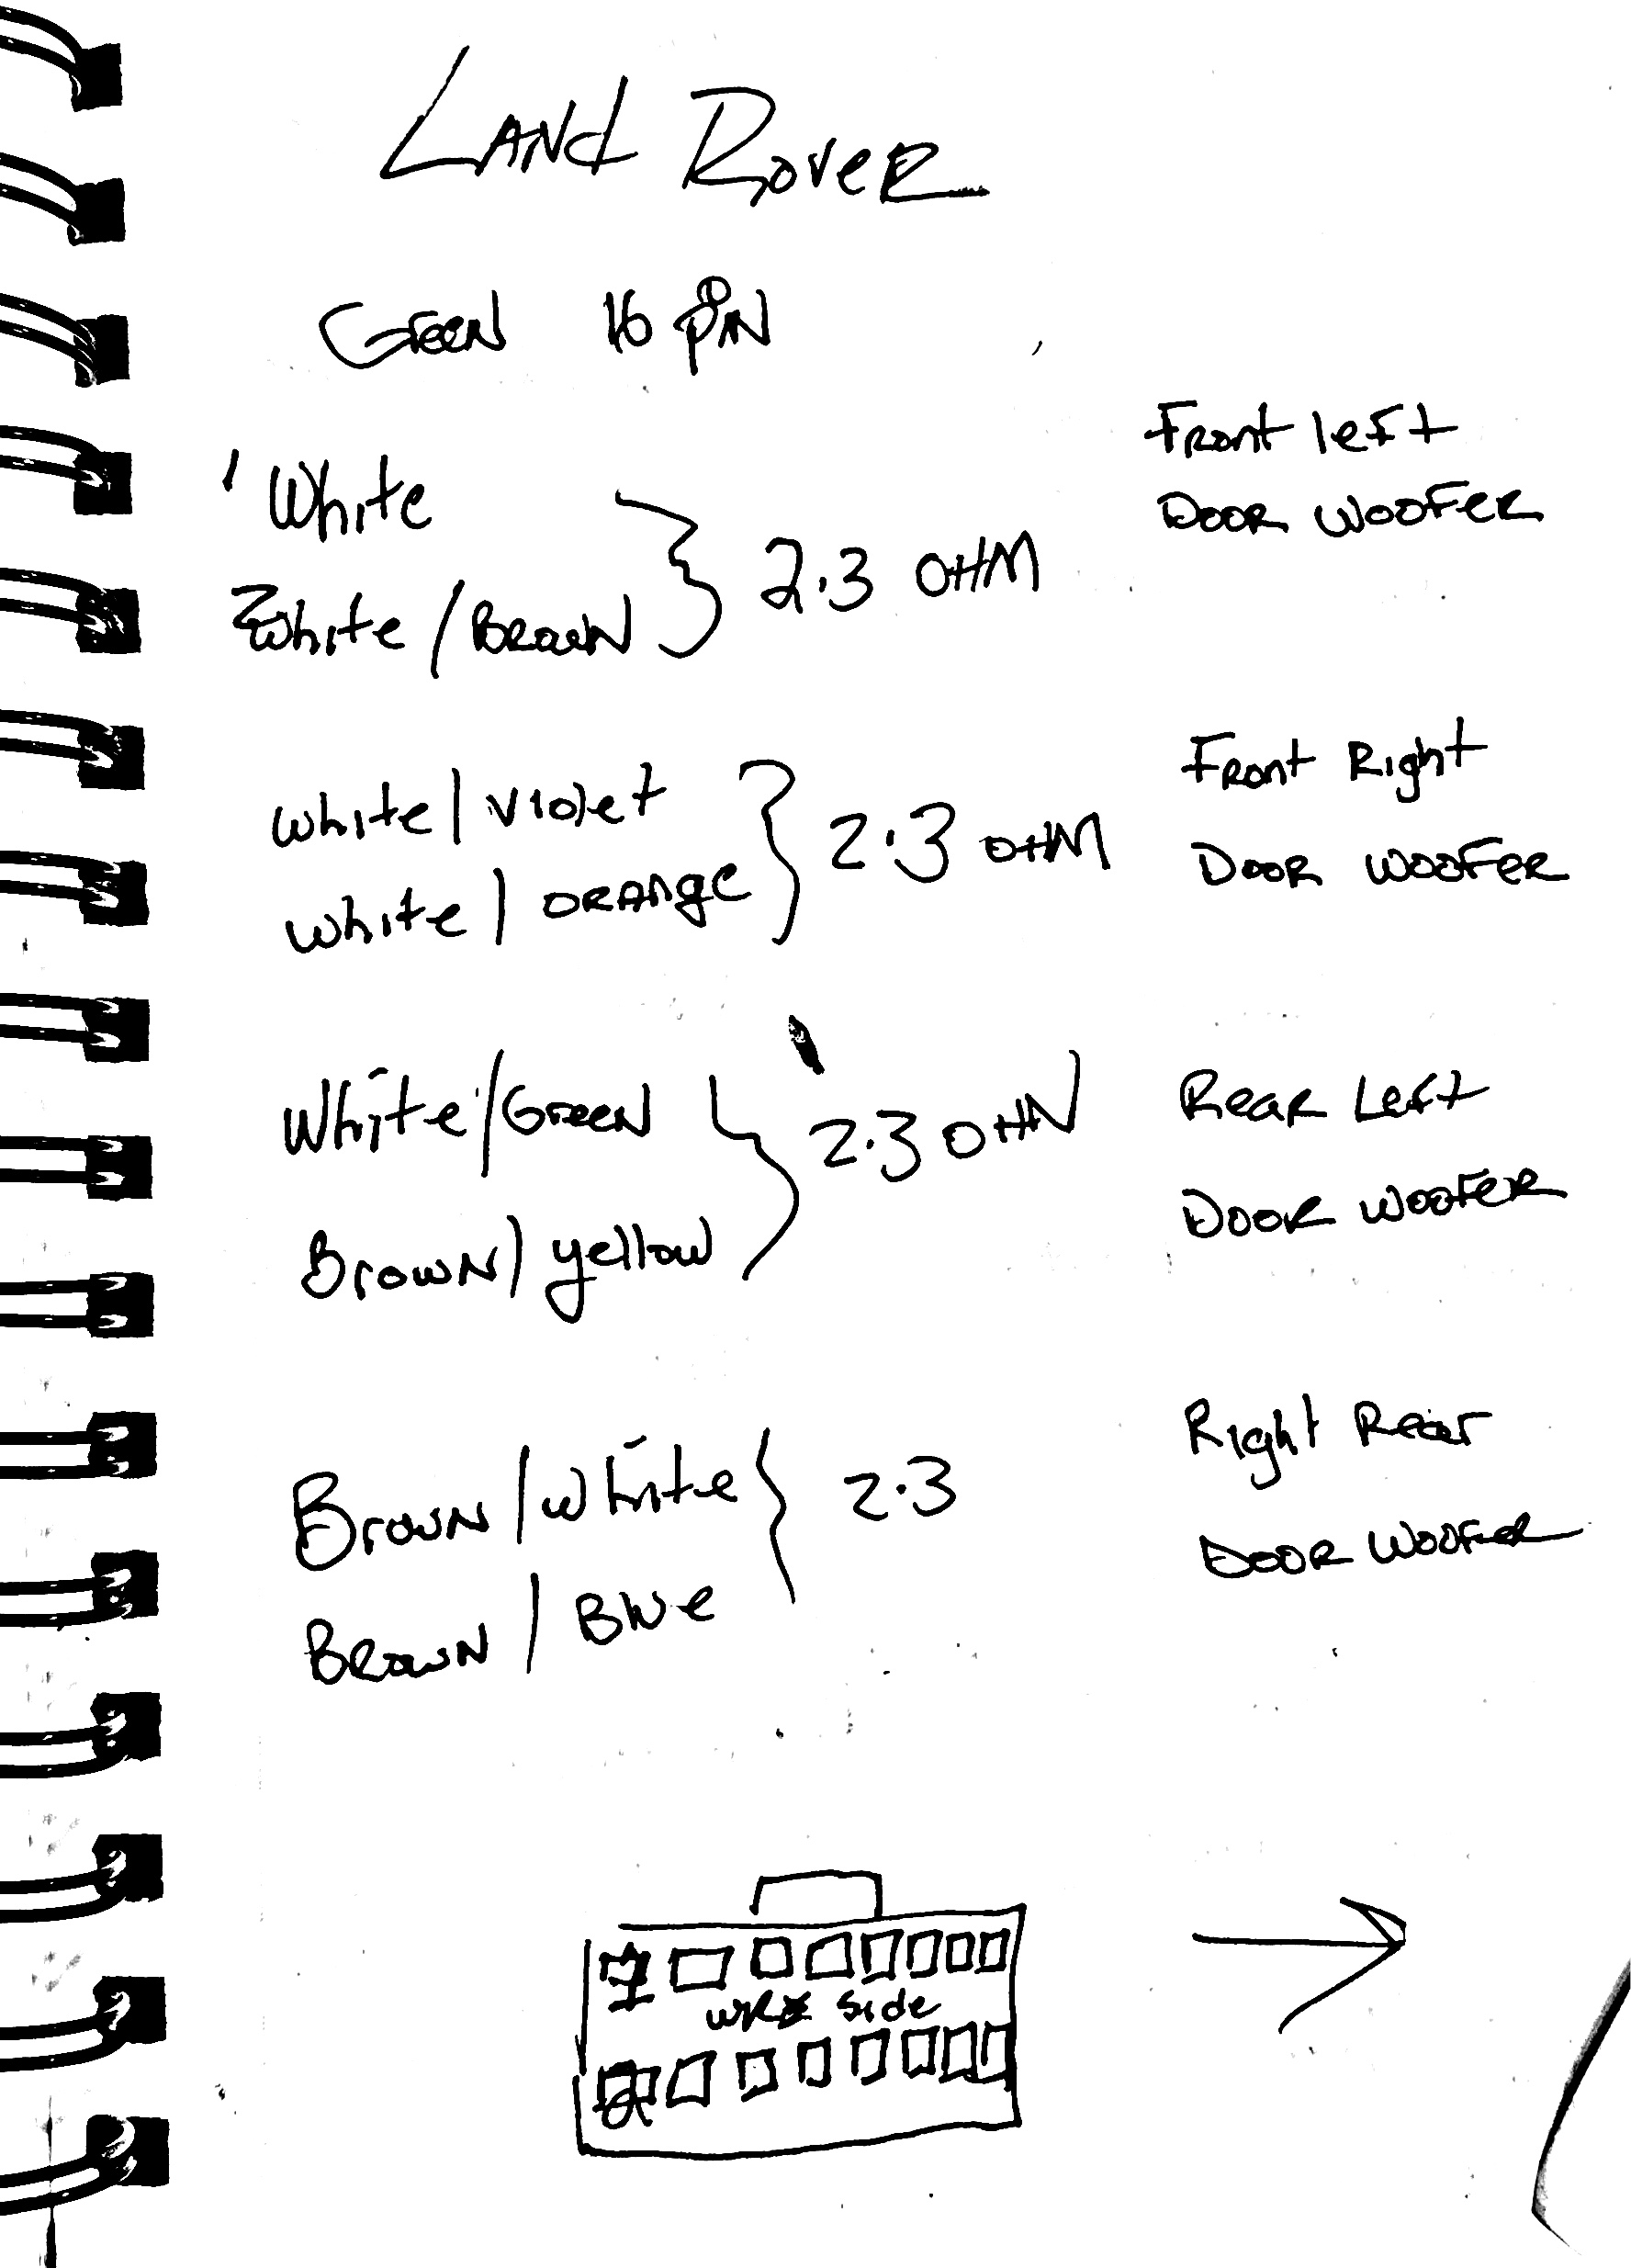 Land Rover
Green 16 Pin
1 White
2 White / Brown } 2.3 OHM
Front left
Door Woofer
White / Violet
White / Orange } 2.3 OHM
Front Right
Door Woofer
White / Green
Brown / yellow } 2.3 OHM
Rear Left
Door Woofer
Brown / White
Brown / Blue } 2.3
Right Rear
Door Woofer
1
side
2